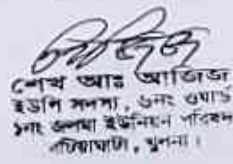 শেখ আঃ আজিজ
ইউপি সদস্য, ৬নং ওয়ার্ড
১নং জলমা ইউনিয়ন পরিষদ
বটিয়াঘাটা, খুলনা।